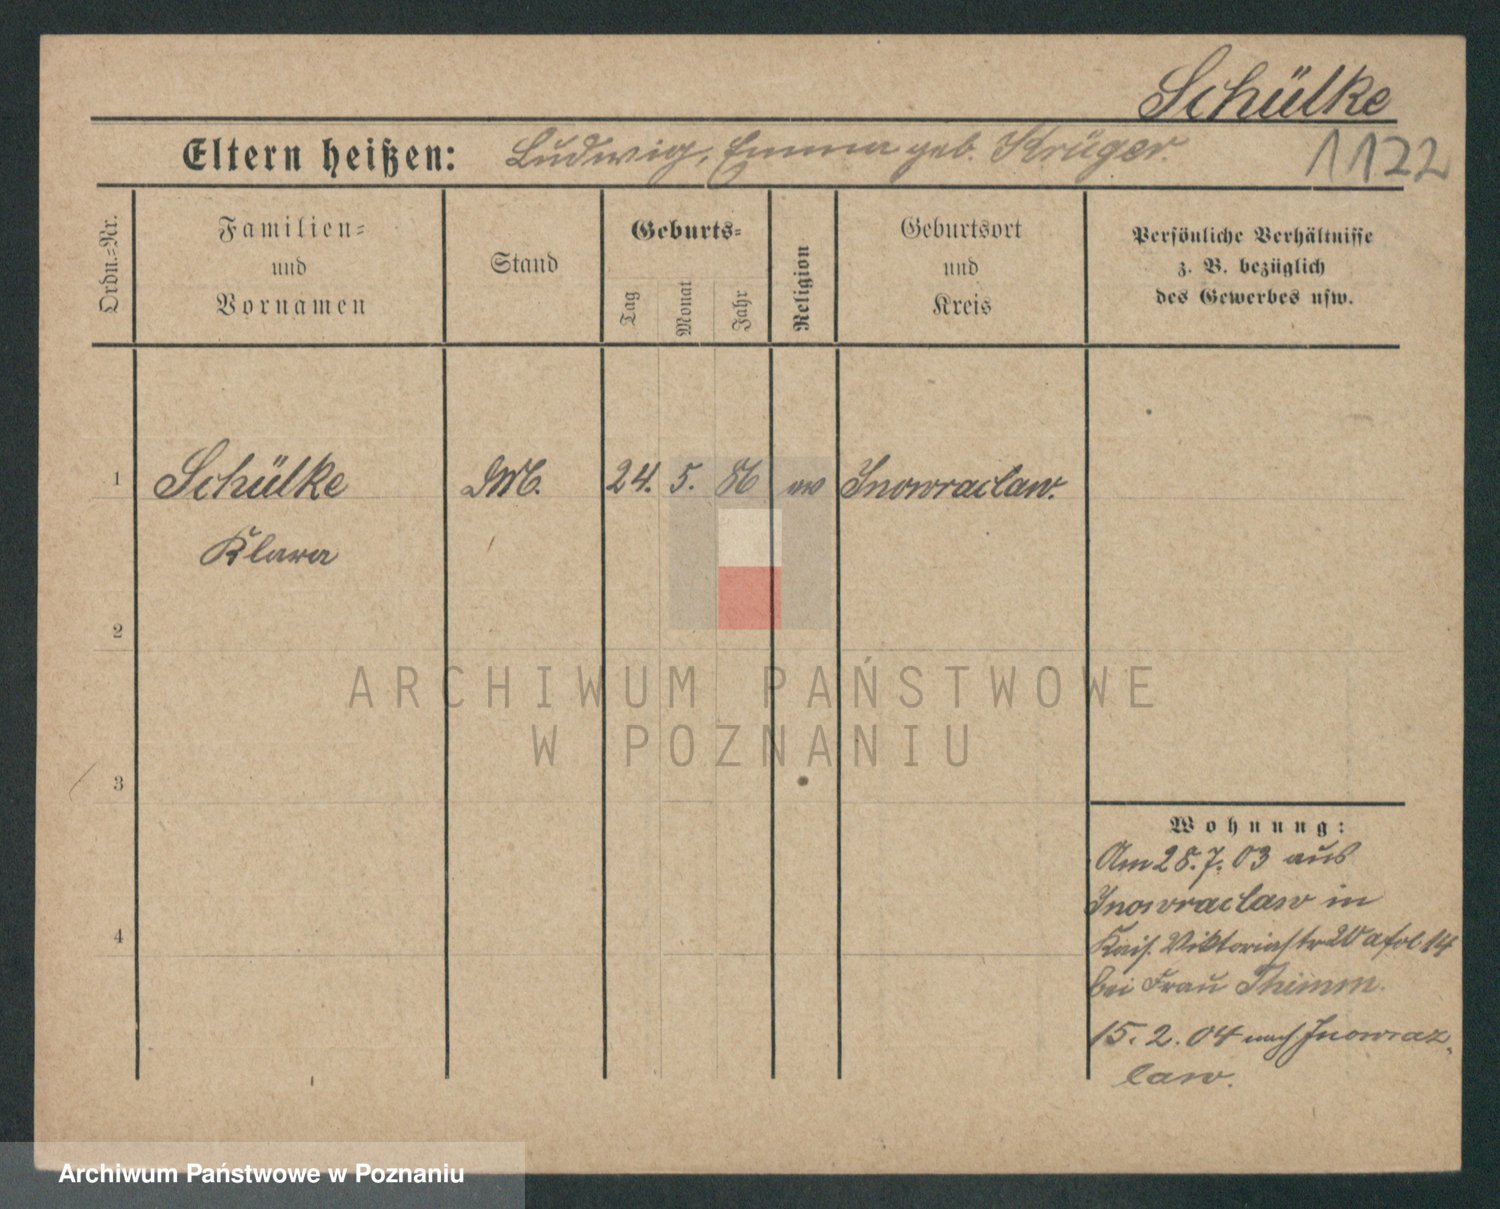 Schülke
Eltern heißen: Ludwig, Emma geb. Krüger.
1122
Ordn.-Nr.
Familien-
und
Vornamen
Stand
Geburts-
Tag
Monat
Jahr
Religion
Geburtsort
und
Kreis
Persönliche Verhältnisse
z. B. bezüglich
des Gewerbes usw.
1 Schülke 24. 5. 86 ev Inowraclaw.
Klara
2
ARCHIWUM PAŃSTWOWE
W POZNANIU
3
Wohnung:
Am 28.7.03 aus
Inowraclaw in
4
Kais. Viktoriastr 20 a fol 14
bei Frau Thimm.
15.2.04 nach Inowraz-
law.
Archiwum Państwowe w Poznaniu